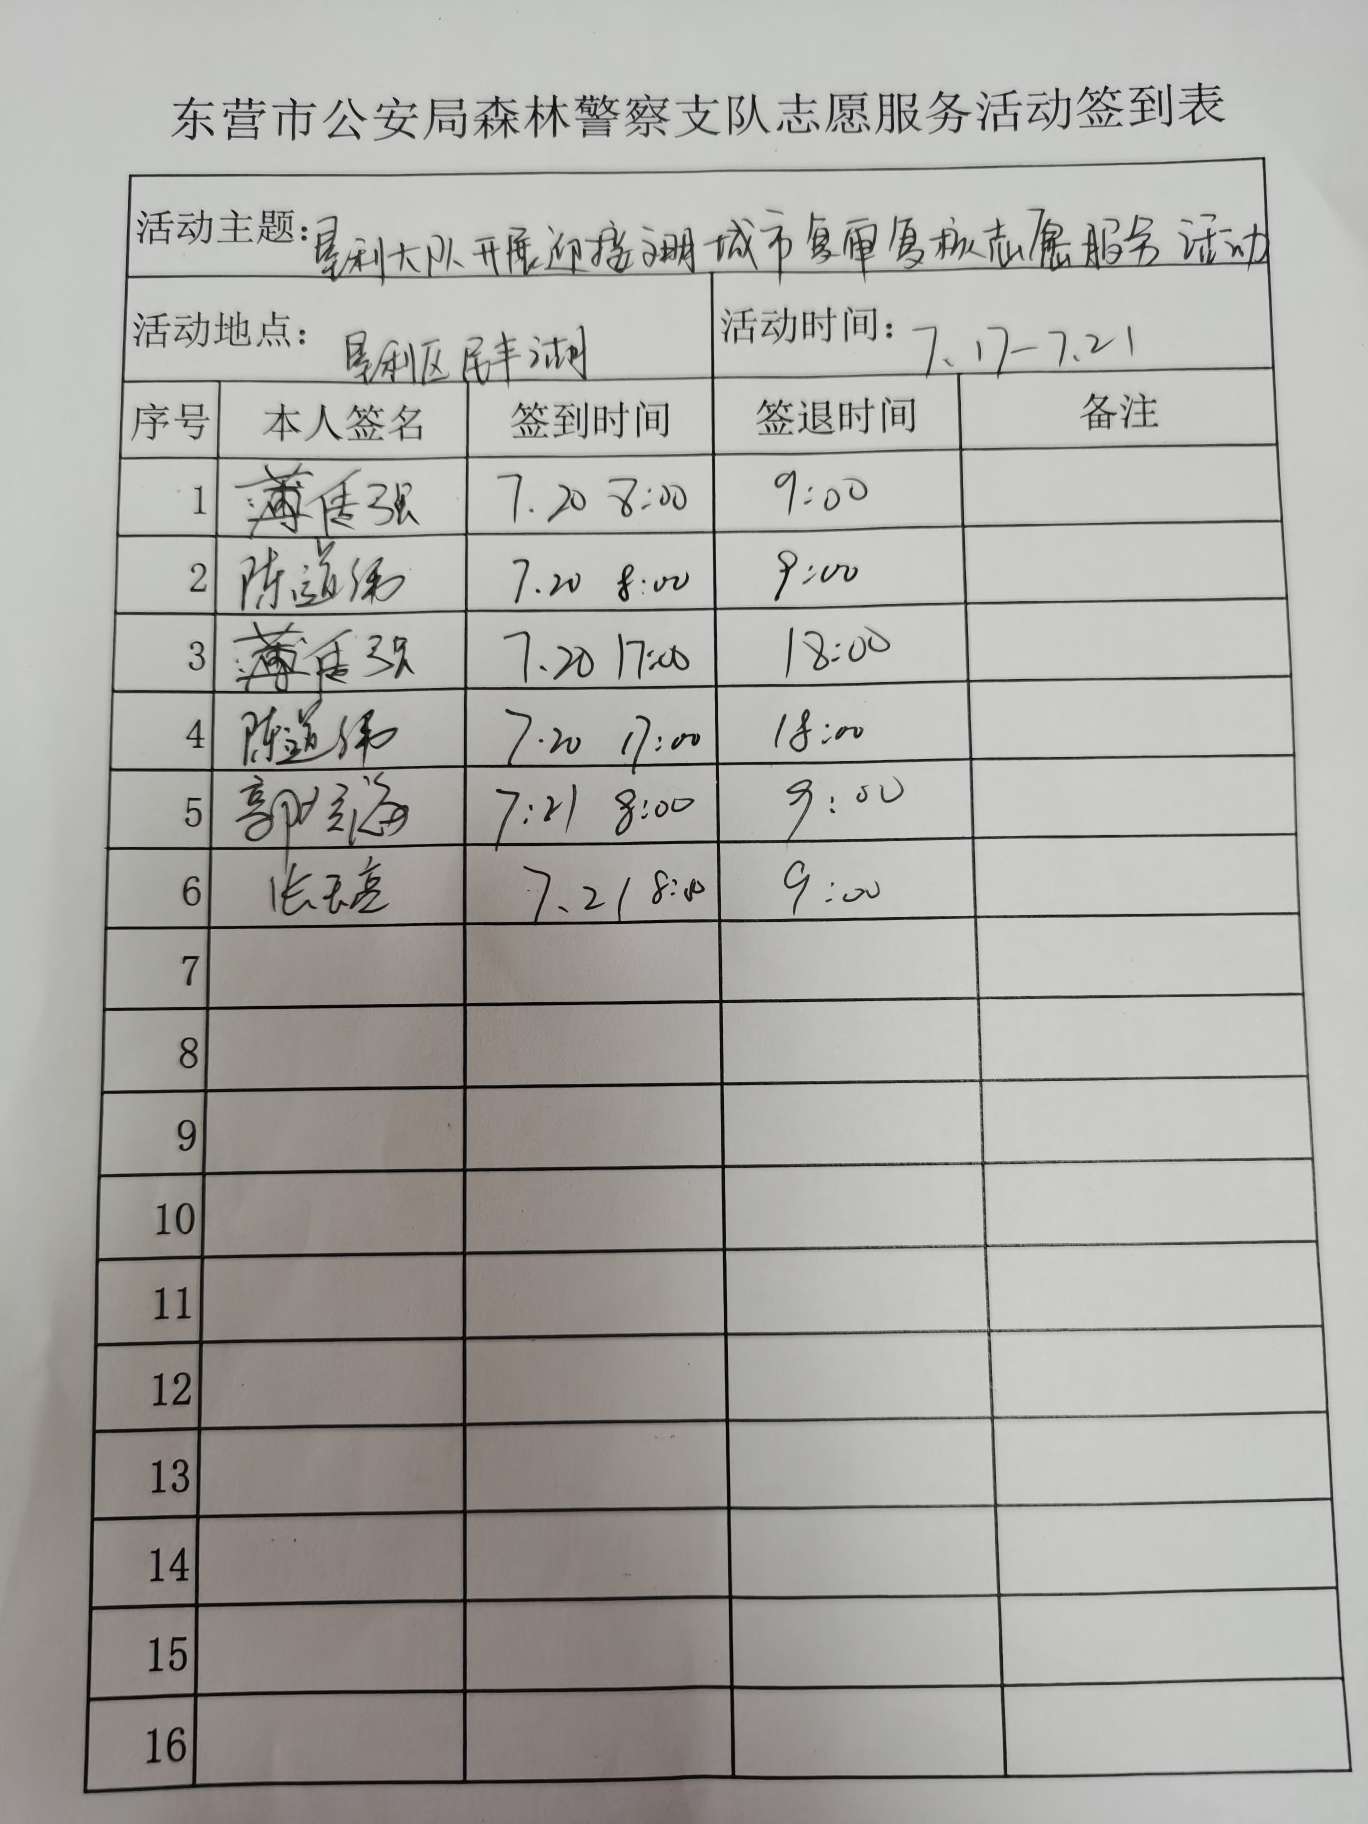 东营市公安局森林警察支队志愿服务活动签到表
活动主题：垦利大队开展迎接文明城市复审复核志愿服务活动
活动地点：垦利区民丰湖 活动时间：7.17-7.21
序号 本人签名 签到时间 签退时间 备注
1 薄 强 7.20 8:00 9:00
2 陈道伟 7.20 8:00 9:00
3 薄 强 7.20 17:00 18:00
4 陈道伟 7.20 17:00 18:00
5 郭 海 7:21 8:00 9:00
6 张玉亮 7.21 8:00 9:00
7
8
9
10
11
12
13
14
15
16